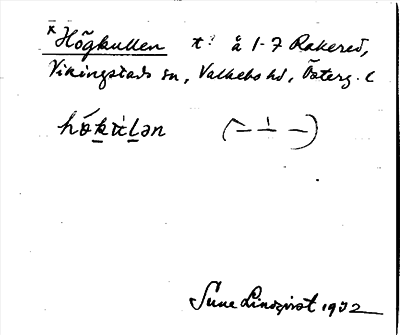 x Högkullen t. å 1-7 Rakered,
Vikingstads sn, Valkebo hd, Österg. l
Sune Lindqvist 1932